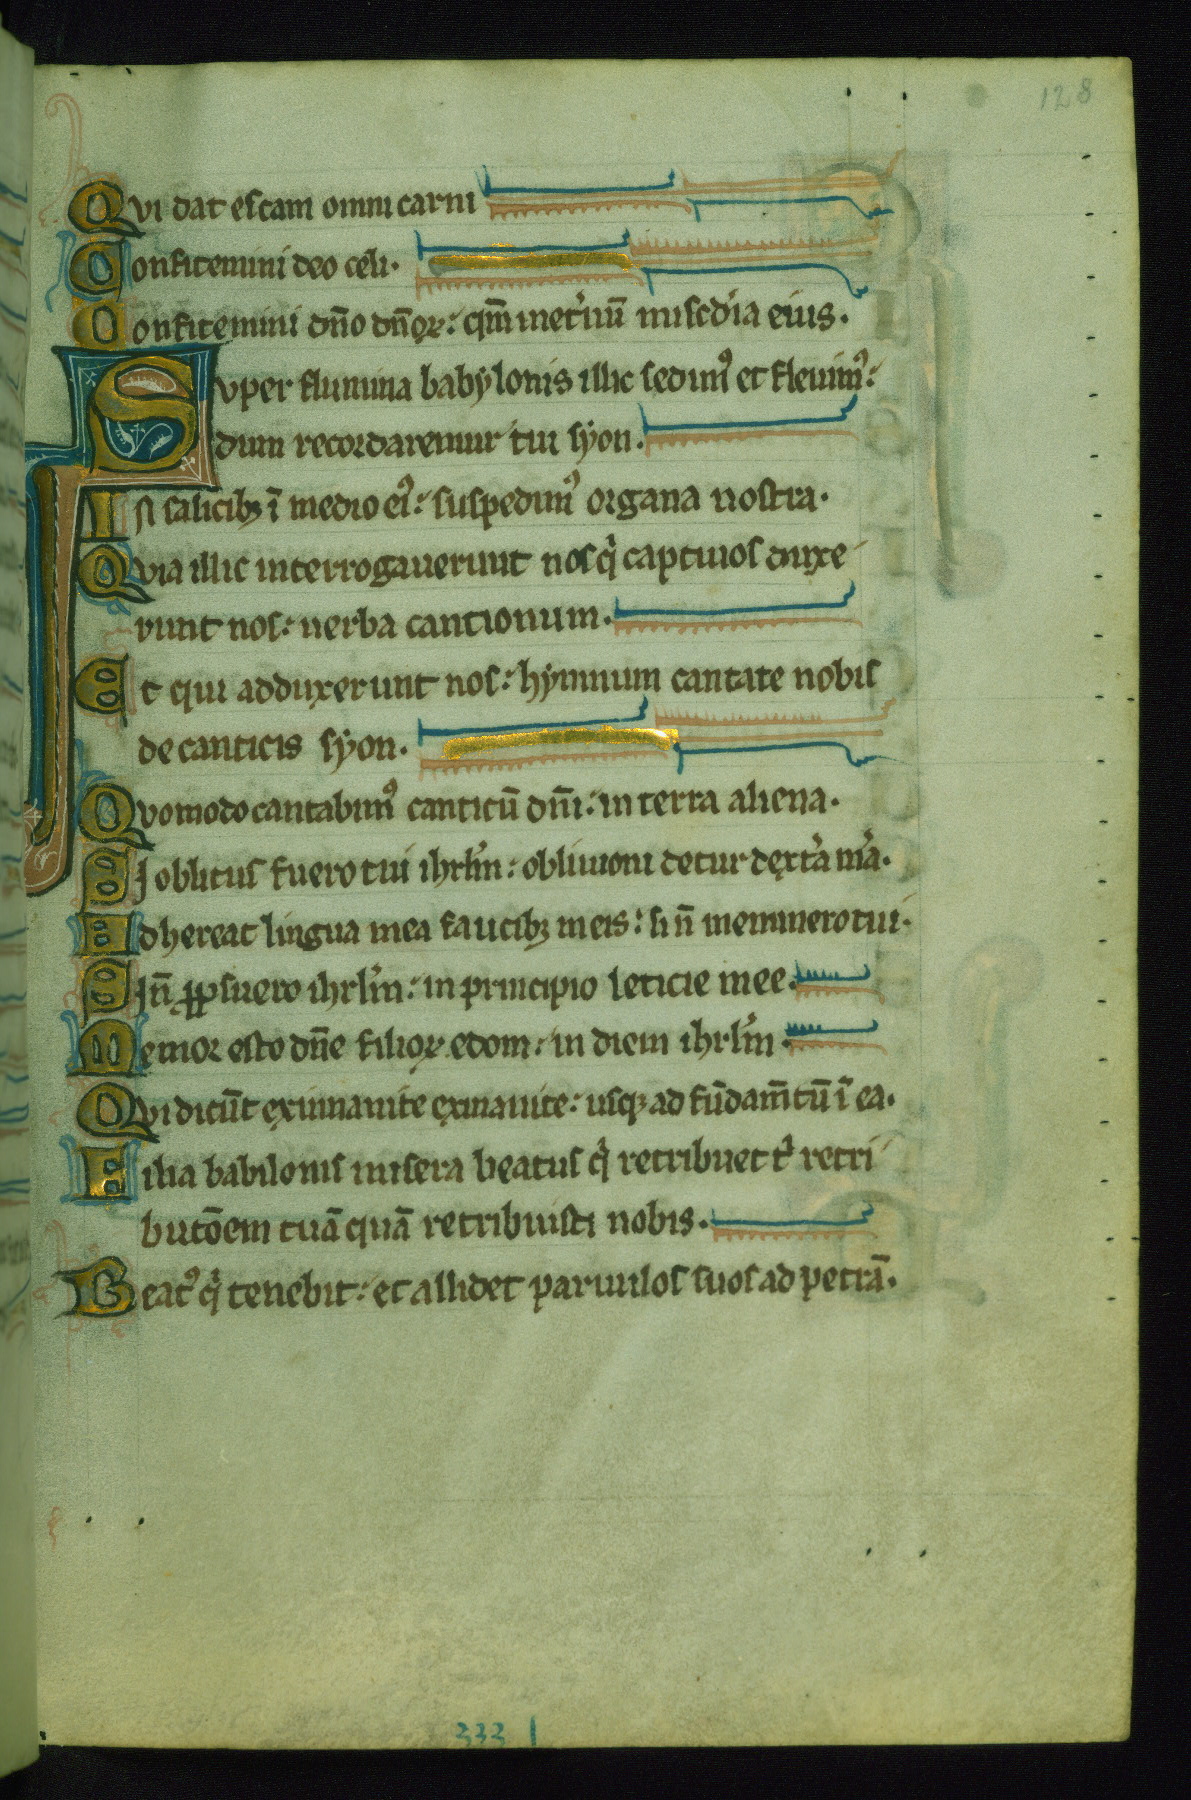 128
Qui dat escam omni carni
Confitemini deo celi.
Confitemini dn̄o dn̄oꝝ: qm̄ inet'nū misc̄dia eius.
Super flumina babylonis illic sedimꝰ et fleuimꝰ:
dum recordaremur tui syon.
In salicibꝫ ī medio eiꝰ: suspēdimꝰ organa nostra.
Quia illic interrogauerunt nos q̇ captiuos duxe
runt nos: uerba cantionum.
Et qui adduxerunt nos: hymnum cantate nobis
de canticis syon.
Quomodo cantabimꝰ canticū dn̄i: in terra aliena.
Si oblitus fuero tui ihrl̄m: obliuioni detur dext'a m̄a.
Adhereat lingua mea faucibꝫ meis: si n̄ meminero tui.
Si n̄ ꝓposuero ihrl̄m: in principio leticie mee.
Memor esto dn̄e filioꝝ edom: in diem ihrl̄m
Qui dicūt exinanite exinanite: usqꝫ ad fūdam̄tū ī ea.
Filia babilonis misera beatus q̇ retribuet t' retri
butōem tuā quā retribuisti nobis.
Beatꝰ q̇ tenebit: et allidet paruulos suos ad petrā.